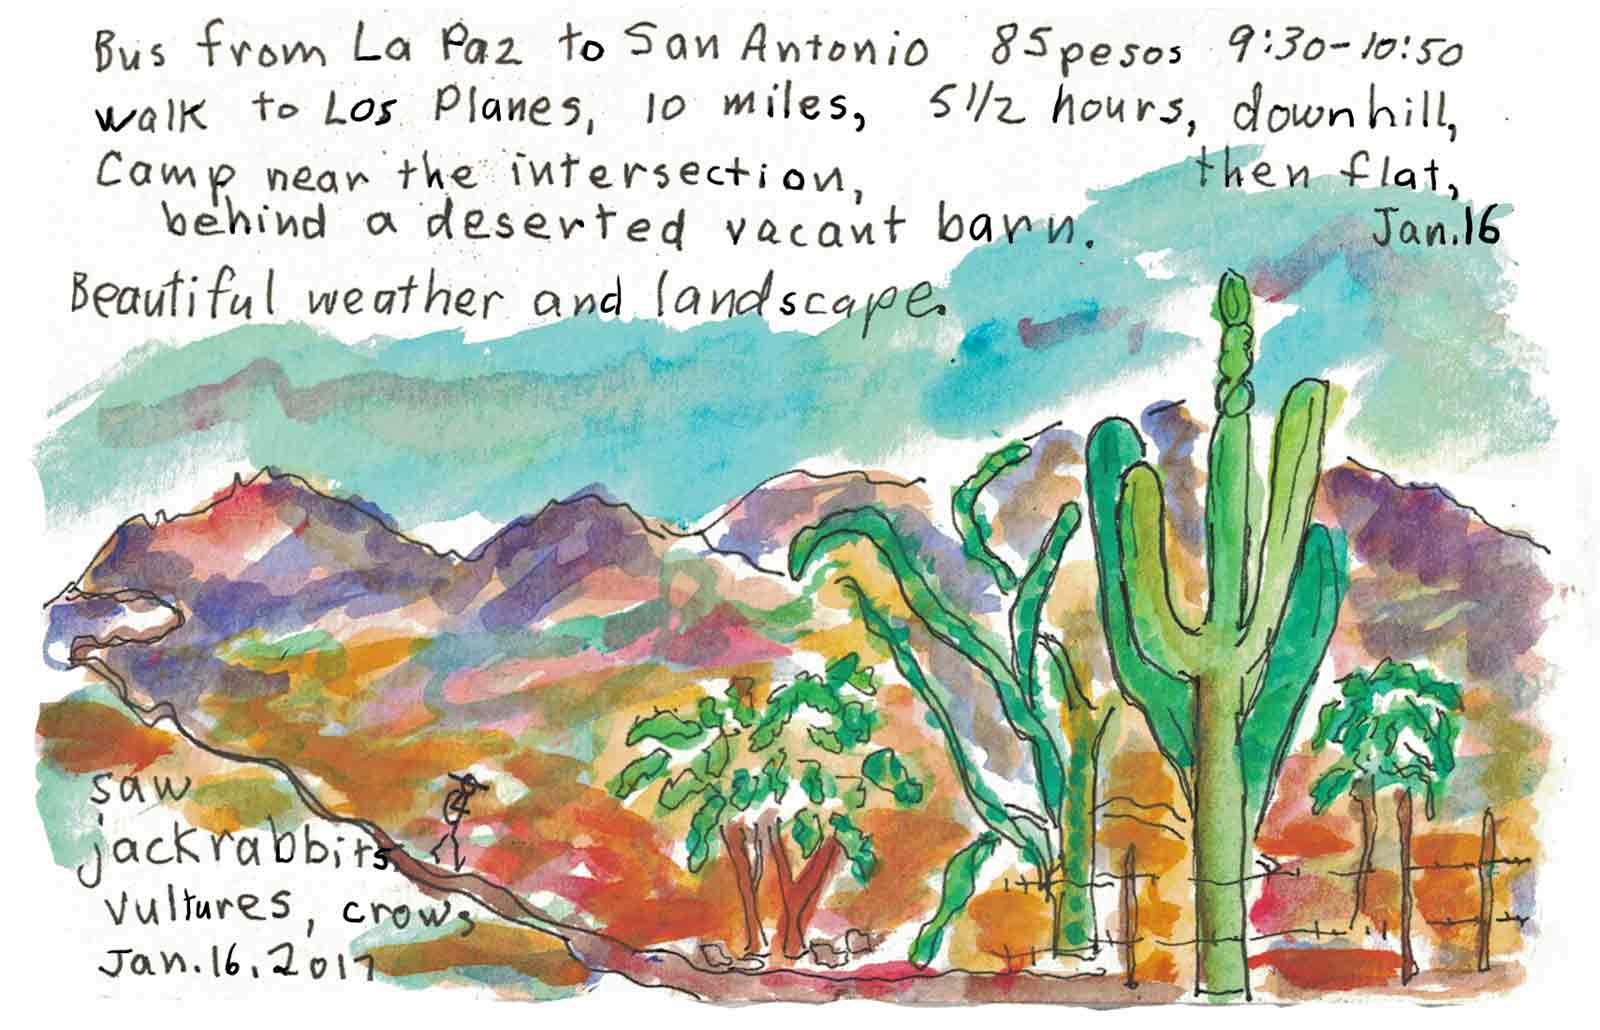 Bus from La Paz to San Antonio 85 pesos 9:30-10:50
walk to Los Planes, 10 miles, 5 1/2 hours, downhill,
Camp near the intersection, then flat,
behind a deserted vacant barn. Jan.16
Beautiful weather and landscape.
saw
jackrabbits,
vultures, crows,
Jan.16,2017